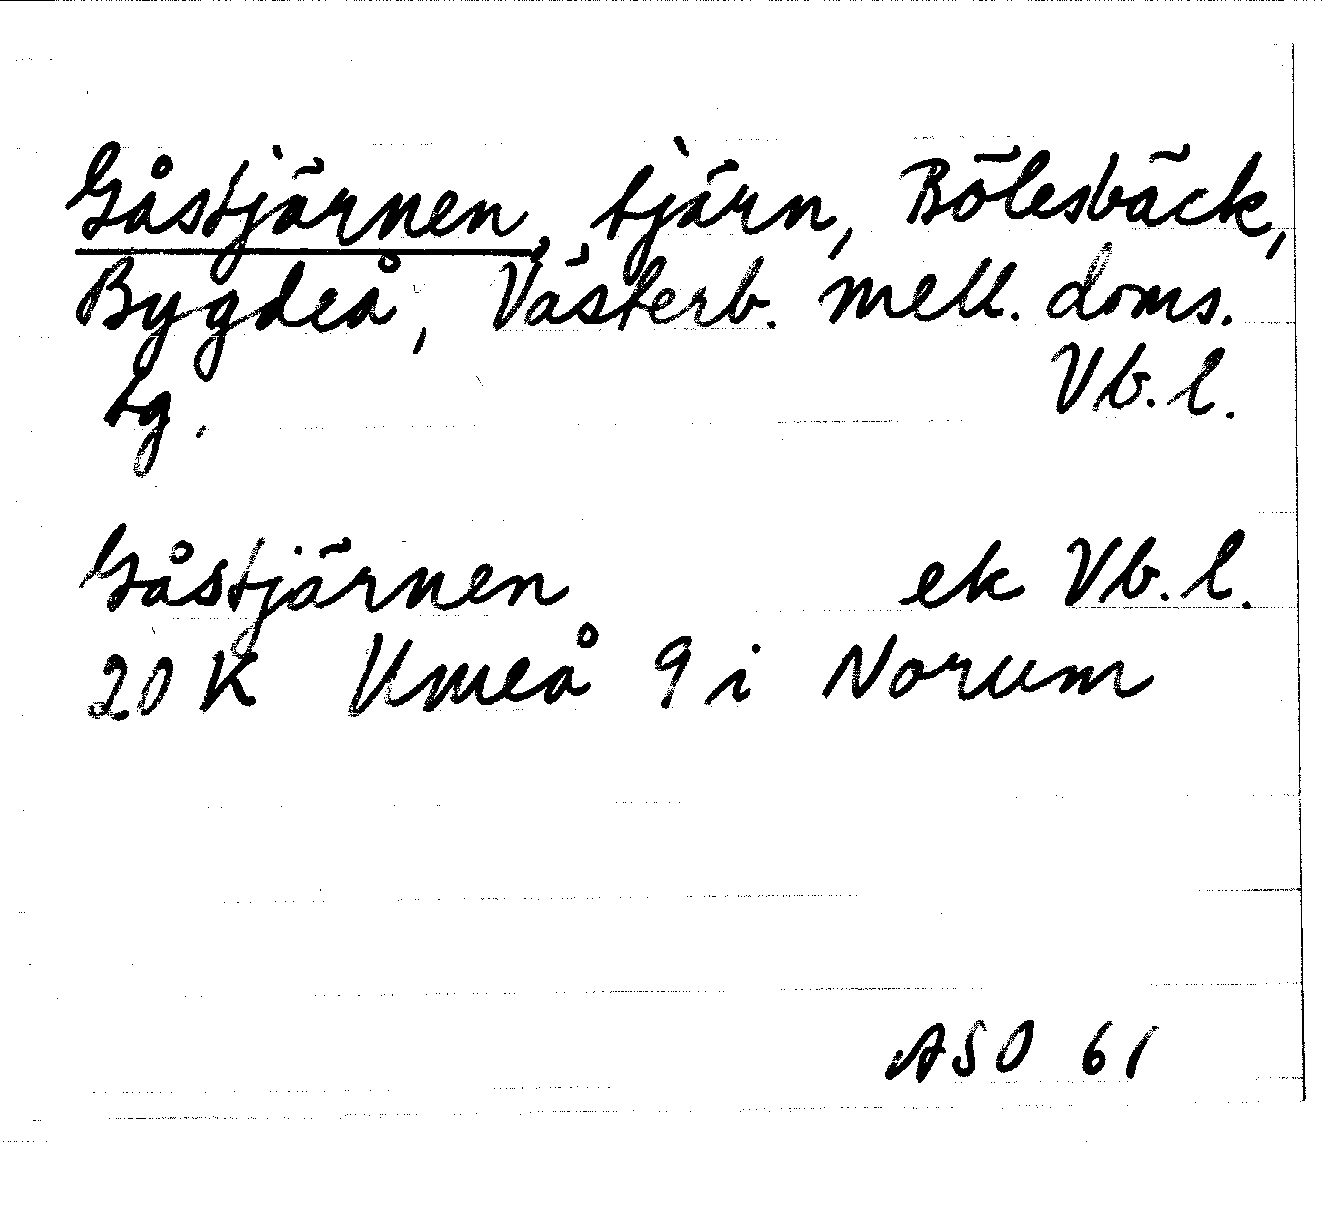 Gåstjärnen, tjärn, Bölesbäck,
Bygdeå, Västerb. mell. doms.
tg. Vb. l.
Gåstjärnen ek Vb. l.
20 K Umeå 9 i Norum
ASO 61